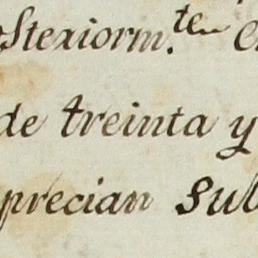 Steriorm.te
de treinta y
precian sub